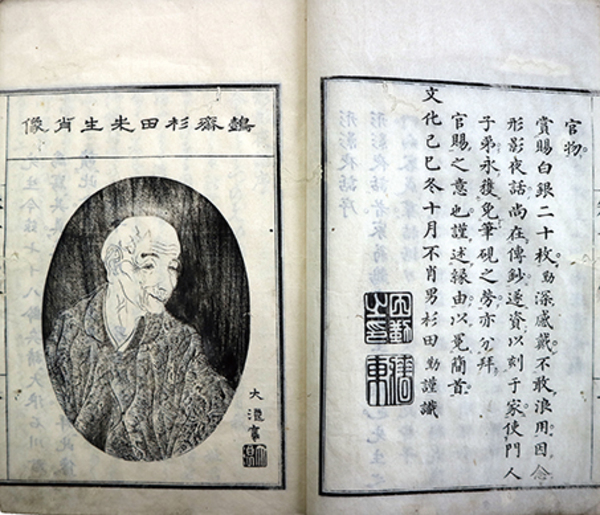 官物
賞賜白銀二十枚勤深感戴不敢浪用因念
形影夜話尚在傳鈔遂資以刻于家使門人
子弟永獲免筆硯之勞亦公拜
官賜之意也謹述緣由以冕簡首
文化己巳冬十月不肖男杉田勤謹識
鷧齋杉田先生肖像
大浪寫